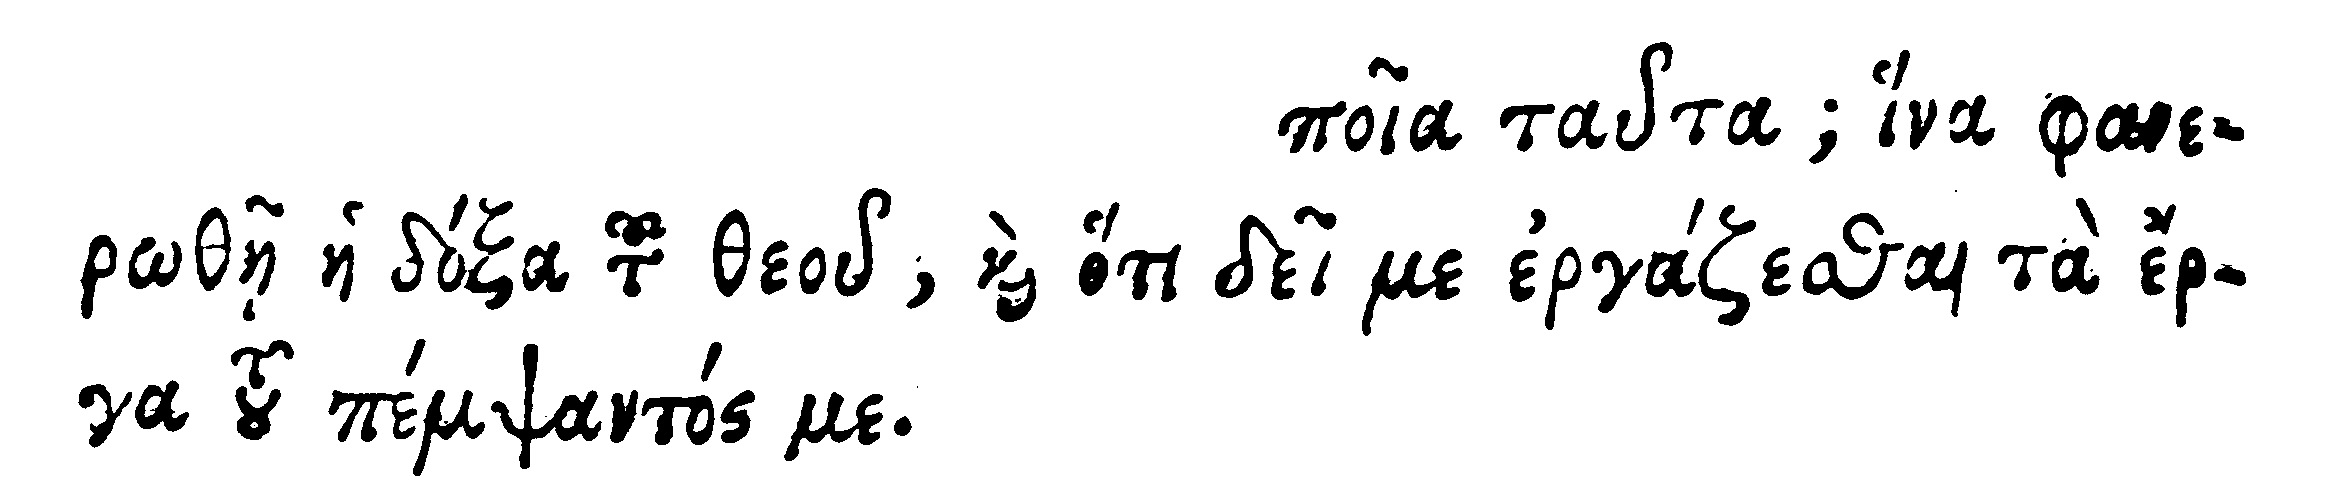 ποῖα ταῦτα; ἵνα φανε-
ρωθῇ ἡ δόξα τοῦ θεοῦ, καὶ ὅτι δεῖ με ἐργάζεσθαι τὰ ἔρ-
γα τοῦ πέμψαντός με.